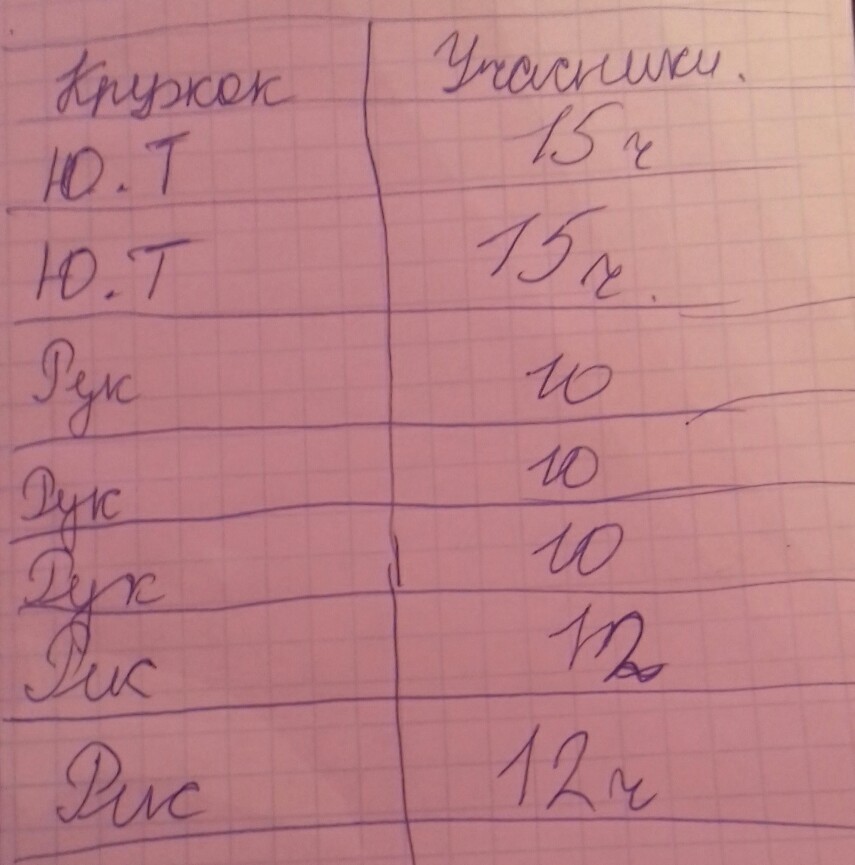 Кружок Учасники.
Ю.Т 15ч
Ю.Т 15ч.
Рук 10
Рук 10
Рук 10
Рик 12
Рис 12ч